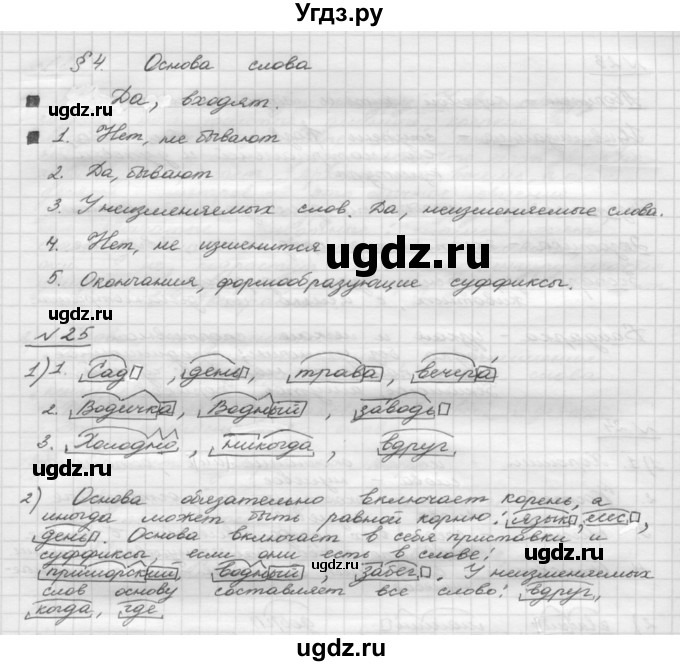 Угдз.ру
§ 4. Основа слова
Да, входят.
ugdz.ru ugdz.ru
1. Нет, не бывают
ugdz.ru
2. Да, бывают
3. У неизменяемых слов. Да, неизменяемые слова.
4. Нет, не изменится
ugdz.ru
5. Окончания, формообразующие суффиксы.
№ 25
1) 1. Сад, день, трава, вечера
2. Водичка, Водный, заводь
3. Холодно, никогда, вдруг.
ugdz.ru ugdz.ru
2) Основа обязательно включает корень, а
иногда может быть равной корню: язык, лес,
день. Основа включает в себя приставки и
суффиксы, если они есть в слове:
приморский, водный, забег. У неизменяемых
слов основу составляет все слово: вдруг,
когда, где
ugdz.ru ugdz.ru
Угдз.ру